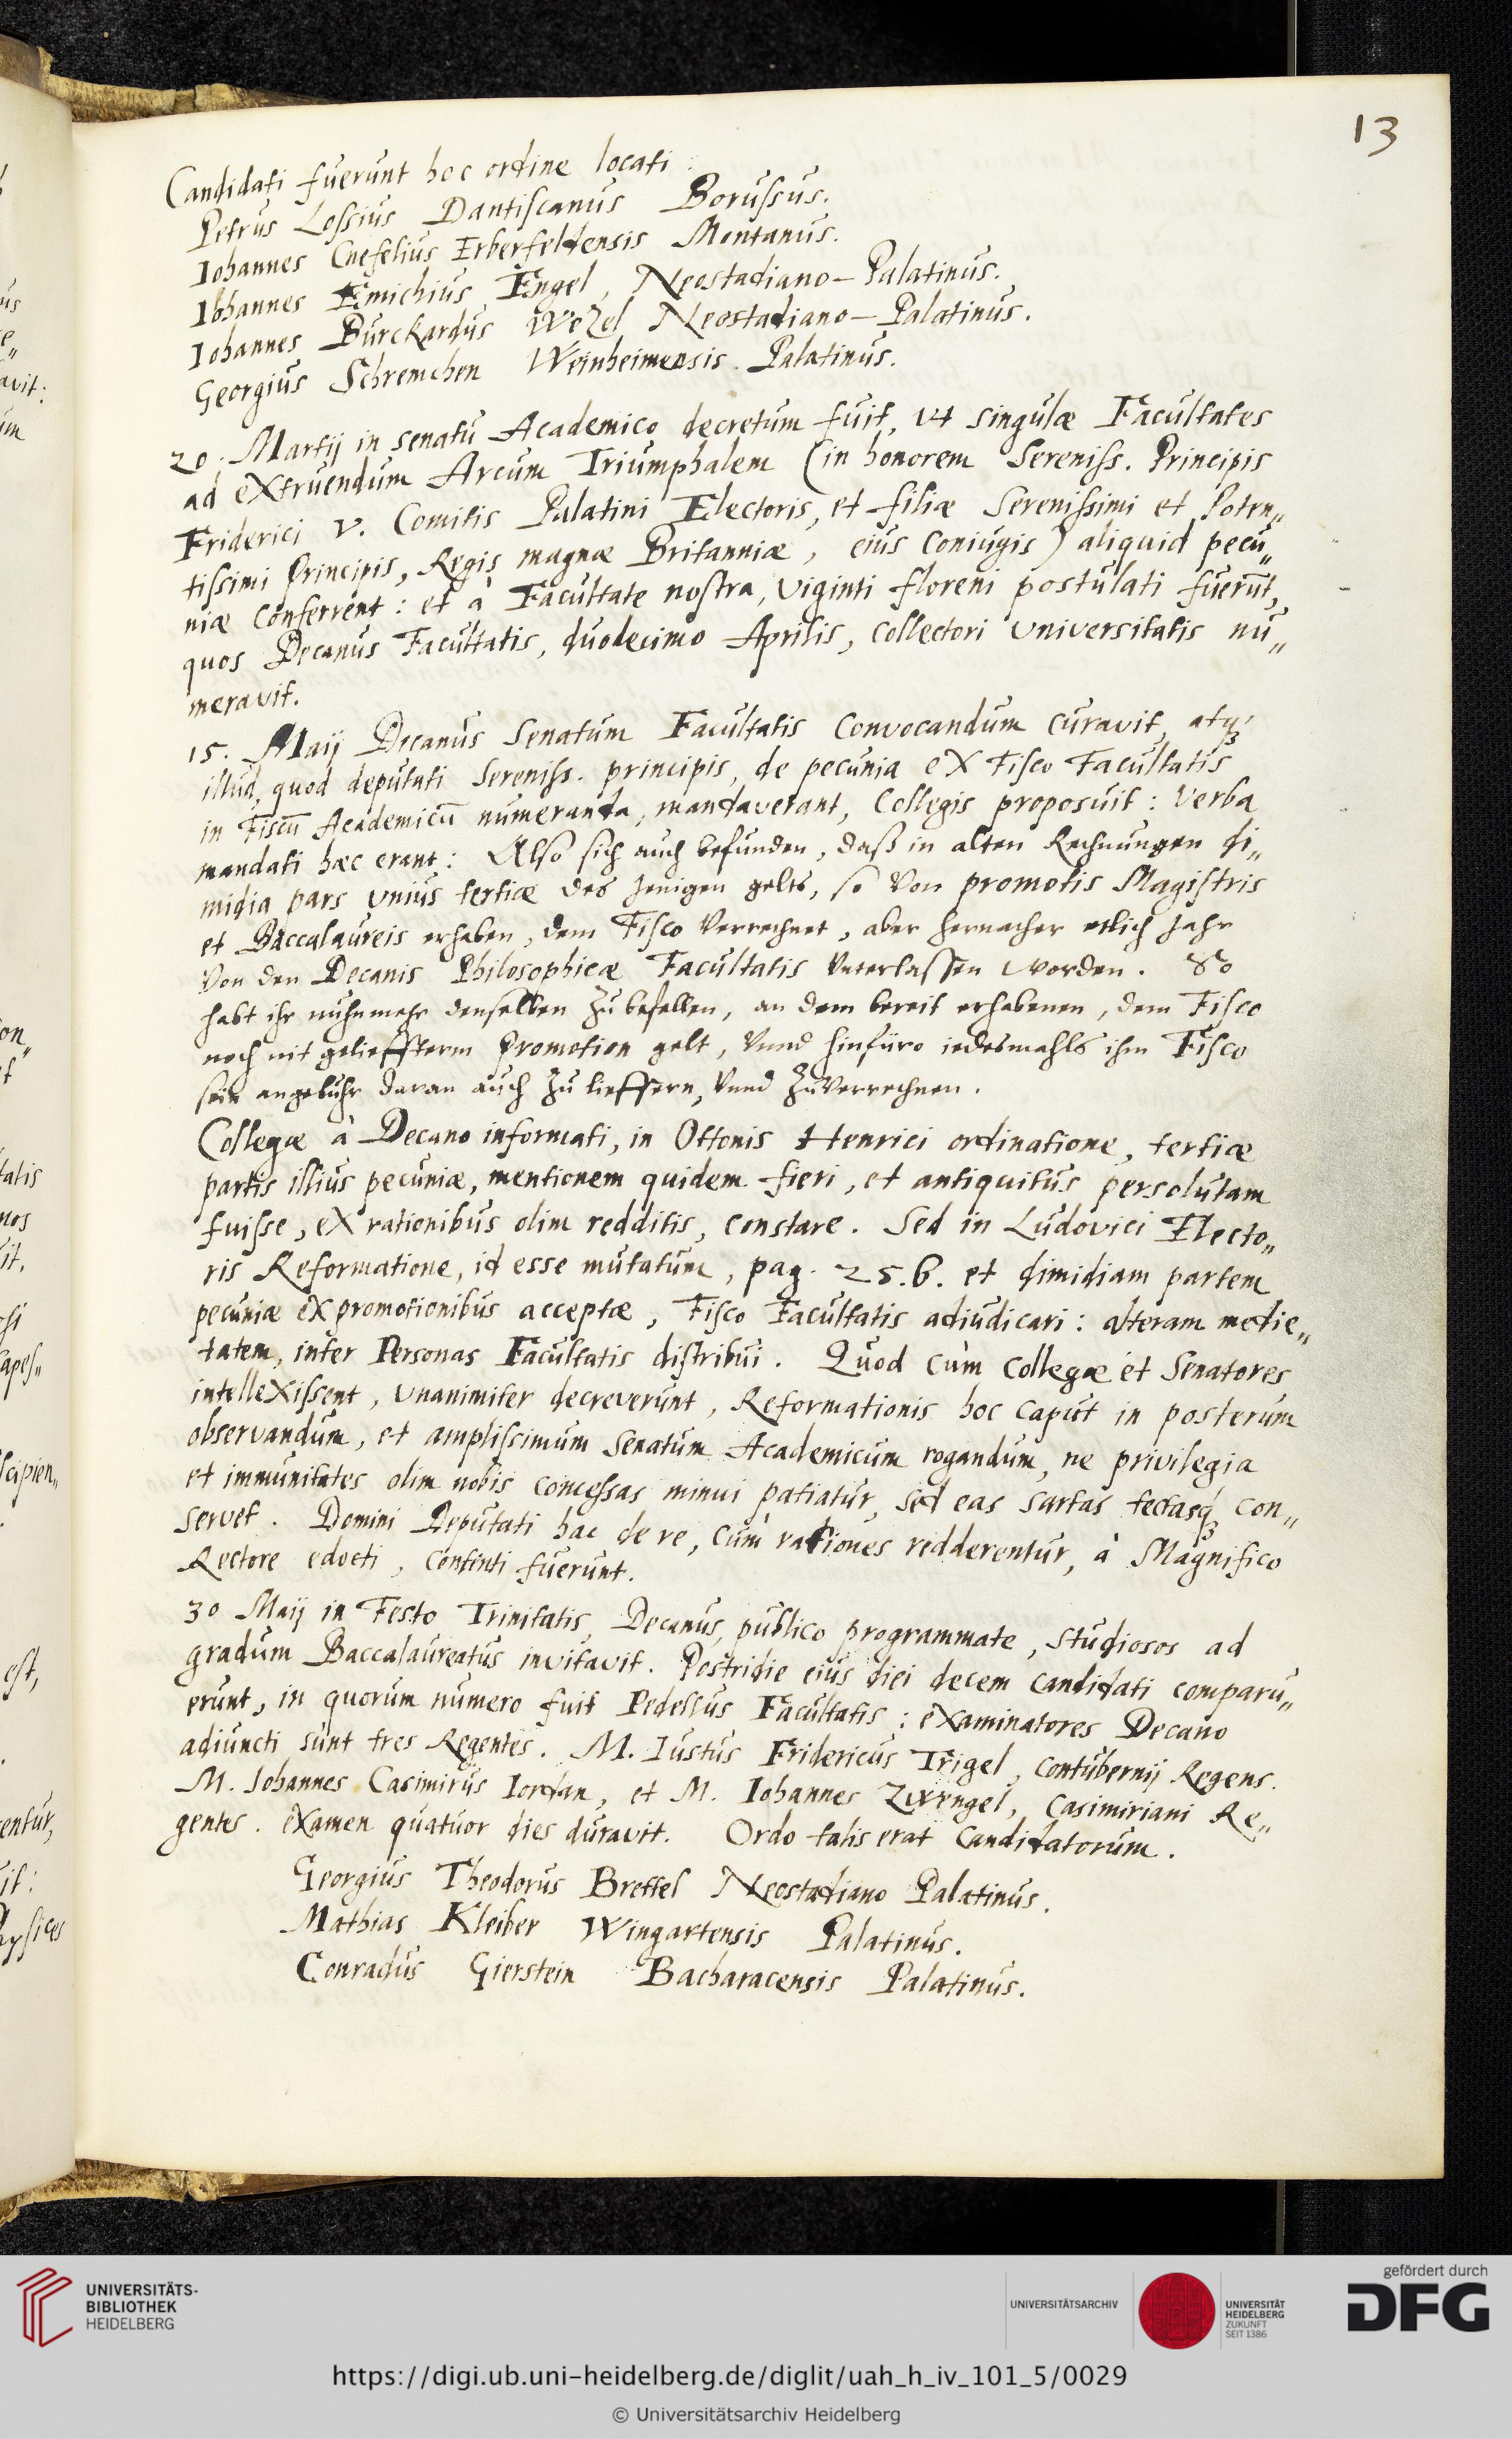 13
Candidati fuerunt hoc ordine locati:
Petrus Lossius Dantiscanus Borussus.
Iohannes Cnefelius Erberfeldensis Montanus.
Iohannes Emichius Engel, Neostadiano-Palatinus.
Iohannes Burckardus Wezel Neostadiano-Palatinus.
Georgius Schremchen Weinheimensis Palatinus.
20. Martij in senatu Academico decretum fuit, vt singulæ Facultates
ad extruendum Arcum Triumphalem (in honorem Sereniss. Principis
Friderici V. Comitis Palatini Electoris, et filiæ Serenissimi et Poten„
tissimi Principis, Regis magnæ Britanniæ, eius coniugis) aliquid pecu„
niæ conferrent: et à Facultate nostra, viginti floreni postulati fuerūt,
quos Decanus Facultatis, duodecimo Aprilis, collectori Universitatis nu„
meravit.
15. Maij Decanus Senatum Facultatis convocandum curavit, atq́ꝫ
illud, quod deputati Sereniss. principis, de pecunia ex Fisco Facultatis
in Fiscū Academicū numeranda, mandaverant, Collegis proposuit: Verba
mandati hæc erant: Also sich auch befunden, daß in alten Rechnungen di„
midia pars unius tertiæ des jenigen gelts, so von promotis Magistris
et Baccalaureis erhaben, dem Fisco verrechnet, aber hernacher etlich Jahr
von den Decanis Philosophicæ Facultatis vnterlassen worden. So
habt ihr nuhnmehr denselben zu befehlen, an dem bereit erhabenen, dem Fisco
noch nit geliefferem Promotion gelt, vnnd hinfüro iedesmahls ihm Fisco
sein angebuhr daran auch zu lieffern, vnnd zuverrechnen.
Collegæ à Decano informati, in Ottonis Henrici ordinatione, tertiæ
partis illius pecuniæ, mentionem quidem fieri, et antiquitus persolutam
fuisse, ex rationibus olim redditis, constare. Sed in Ludovici Electo„
ris Reformatione, id esse mutatum, pag. 25.b. et dimidiam partem
pecuniæ ex promotionibus acceptæ, Fisco Facultatis adiudicari: alteram medie„
tatem, inter Personas Facultatis distribui. Quod cùm collegæ et Senatores
intellexissent, unanimiter decreverunt, Reformationis hoc caput in posterum
observandum, et amplissimum Senatum Academicum rogandum, ne privilegia
et immunitates olim nobis concessas minui patiatur, sed eas sartas tectasqꝫ con„
servet. Domini Deputati hac de re, cùm rationes redderentur, à Magnifico
Rectore edocti, contenti fuerunt.
30 Maij in Festo Trinitatis, Decanus, publico programmate, studiosos ad
gradum Baccalaureatus invitavit. Postridie eius diei decem candidati comparu„
erunt, in quorum numero fuit Pedellus Facultatis: examinatores Decano
adiuncti sunt tres Regentes. M. Iustus Fridericus Trigel, contubernij Regens.
M. Iohannes Casimirus Iordan, et M. Iohannes Zwengel, Casimiriani Re„
gentes. examen quatuor dies duravit. Ordo talis erat candidatorum.
Georgius Theodorus Brettel Neostadiano Palatinus.
Mathias Kleiber Wingartensis Palatinus.
Conradus Gierstein Bacharacensis Palatinus.
UNIVERSITÄTS-
BIBLIOTHEK
HEIDELBERG
UNIVERSITÄTSARCHIV
UNIVERSITÄT
HEIDELBERG
ZUKUNFT
SEIT 1386
gefördert durch
DFG
https://digi.ub.uni-heidelberg.de/diglit/uah_h_iv_101_5/0029
© Universitätsarchiv Heidelberg